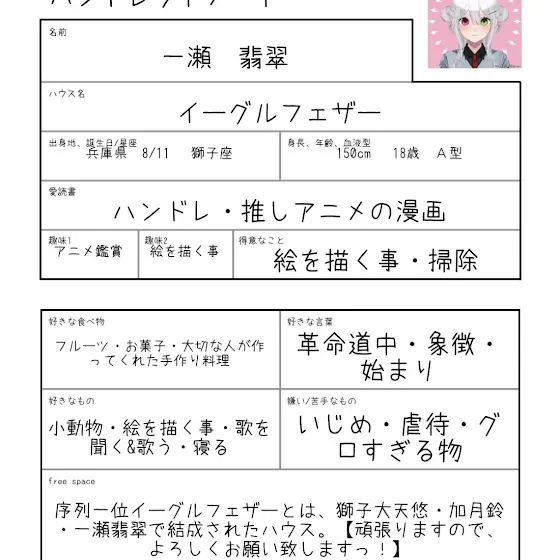 名前
一瀬 翡翠
ハウス名
イーグルフェザー
出身地、誕生日/星座
兵庫県 8/11 獅子座
身長、年齢、血液型
150cm 18歳 A型
愛読書
ハンドレ・推しアニメの漫画
趣味1
アニメ鑑賞
趣味2
絵を描く事
得意なこと
絵を描く事・掃除
好きな食べ物
フルーツ・お菓子・大切な人が作
ってくれた手作り料理
好きな言葉
革命道中・象徴・
始まり
好きなもの
小動物・絵を描く事・歌を
聞く&歌う・寝る
嫌い/苦手なもの
いじめ・虐待・グ
ロすぎる物
free space
序列一位イーグルフェザーとは、獅子大天悠・加月鈴
・一瀬翡翠で結成されたハウス。【頑張りますので、
よろしくお願い致しますっ！】